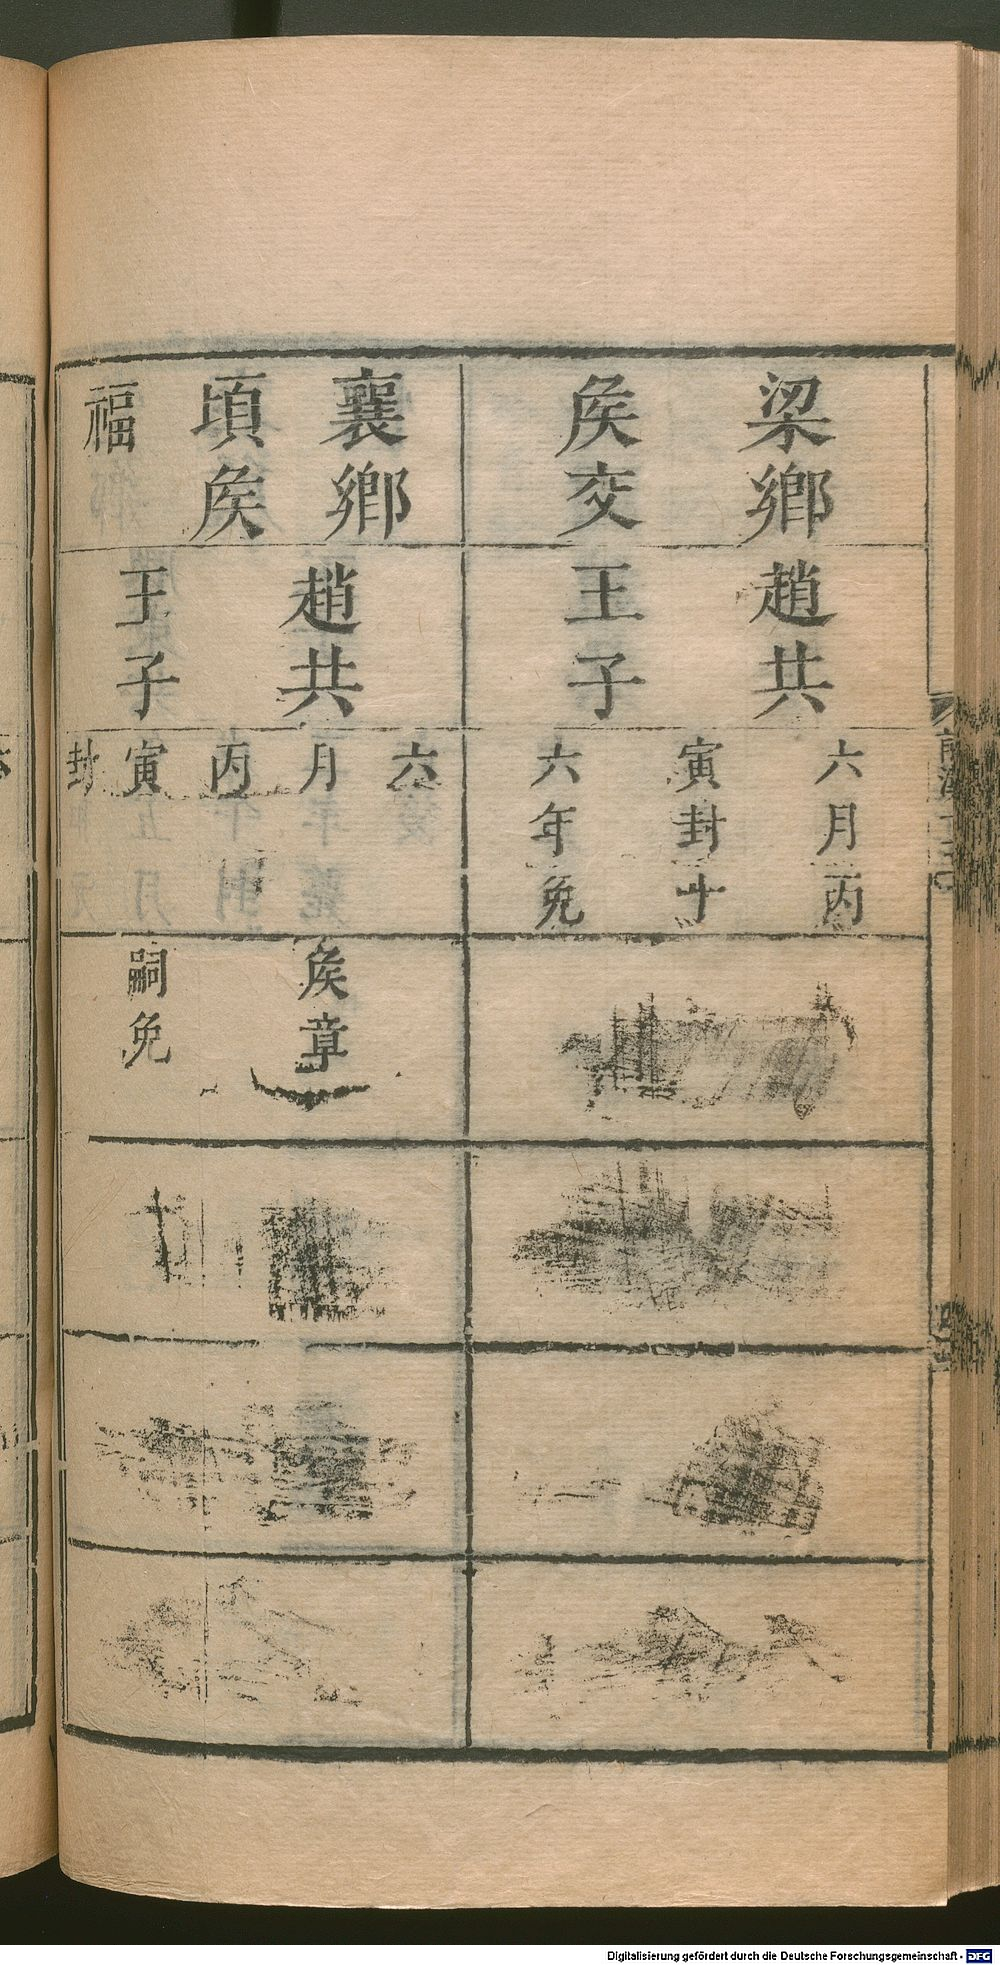 梁鄉
矦交
趙共
王子
六月丙
寅封十
六年免
襄鄉
頃矦
福
趙共
王子
六
月
丙
寅
封
矦章
嗣免
Digitalisierung gefördert durch die Deutsche Forschungsgemeinschaft - DFG